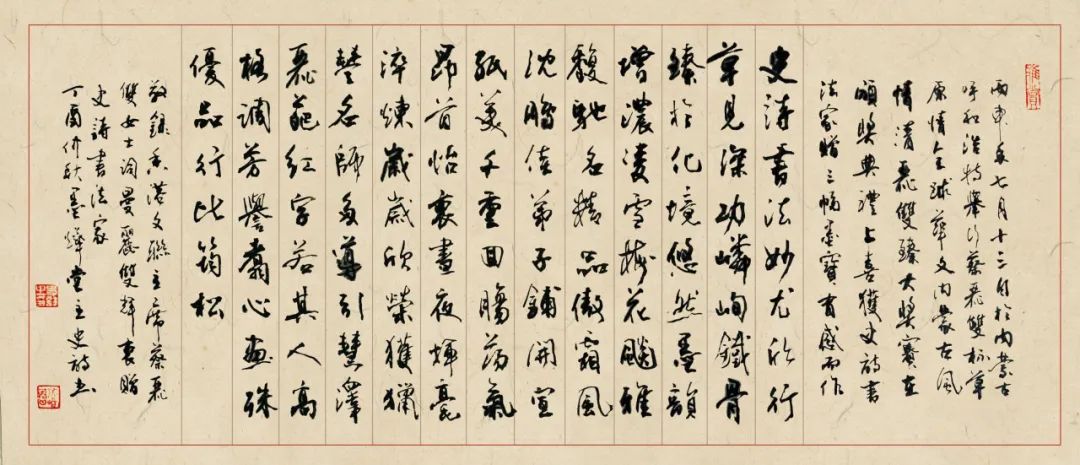 丙申年七月十三日於內蒙古
呼和浩特舉行蔡麗雙杯草
原情全球華文內蒙古風
情清麗雙臻大獎賽在
頒獎典禮上喜獲史詩書
法家贈三幅墨寶有感而作
史詩書法妙尤欣行
草見深功嶙峋鐵骨
臻於化境悠然墨韻
增濃凌雪梅花飄雅
馥馳名精品傲霜風
沈腾佳弟子鋪開宣
紙美千重回腸蕩氣
昂首怡襄晝夜揮毫
淬煉歲歲欣榮獲獺
譽名師多導引慧澤
麗葩紅字若其人高
格調芳譽翥心畫殊
優品行比筠松
敬錄香港文聯主席蔡麗
雙女士詞曼麗雙輝衷贈
史詩書法家
丁酉仲秋墨燁堂主史詩書